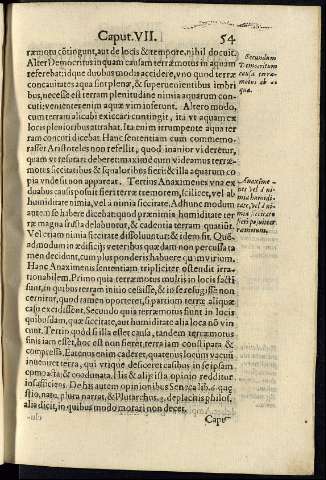 Caput. VII. 54
ræmotu cõtingunt, aut de locis & tempore, nihil docuit.
Alter Democritus in quam causam terræmotus in aquam
referebat: idque duobus modis accidere, vno quod terræ
concauitates aqua sint plenæ, & superuenientibus imbri
bus, necesse est terram plenitudine nimia aquarum concu
ti: venientẽ enim aquæ vim
do, cum terram alicubi exiccari contingit, ita vt aquam ex
locis plenioribus attrahat. Ista enim irrumpente aqua ter
ram concuti dicebat. Hanc sententiam cum commemo
rasset Aristoteles non refellit, quod inanior videretur,
quam vt refutari deberet: maximè cum videamus terræ
motus siccitatibus & squaloribus fieri: & illa aquarum co
pia vndè sit non apparet. Tertius Anaximenes vna ex
duabus causis possit fieri terræ tremorem, scilicet, vel ab
humiditate nimia, vel à nimia siccitate. Ad hunc modum
autem se habere dicebat: quod præ nimia humiditate ter
ræ magna frusta delabuntur, & cadentia terram quatiũt.
Vel etiam nimium siccitate dissoluuntur: & idem fit. Quẽ-
admodum in ædificijs veteribus quædam non percussa ta
men decidunt, cum plus ponderis habuere quàm virium.
Hanc Anaximenis sententiam tripliciter ostendit irra-
tionabilem. Primo quia terræmotus multis in locis facti
sunt, in quibus terram
cernitur, quod tamen oporteret, si partium terræ aliquæ
casu excidissent. Secundo quia terræmotus fiunt in locis
quibusdam, quæ siccitate, aut humiditate alia loca nõ vin
cunt. Tertio quod si illa esset causa, tandem terræmotus
finis iam esset, hoc est non fieret, terra iam constipata &
compressa. Eatenus enim caderet, quatenus locum vacuũ
inueniret terra, qui vtique desiceret casibus in se ipsam
compacta, & coadunata. His & alijs ista opinio redditur
insufficiens. De his autem opinionibus Seneca lib. 6. quę
stio. nato. plura narrat, & Plutarchus. 3. de placitis philos.
alia dicit, in quibus modo morari non decet.
Capu
Secundum
Democritum
causa terræ
motus ab a-
qua.
Anaxime-
nes vel à ni-
mia humidi-
tate, vel à ni-
mia siccitate
fieri posuit ter-
ræmotum.